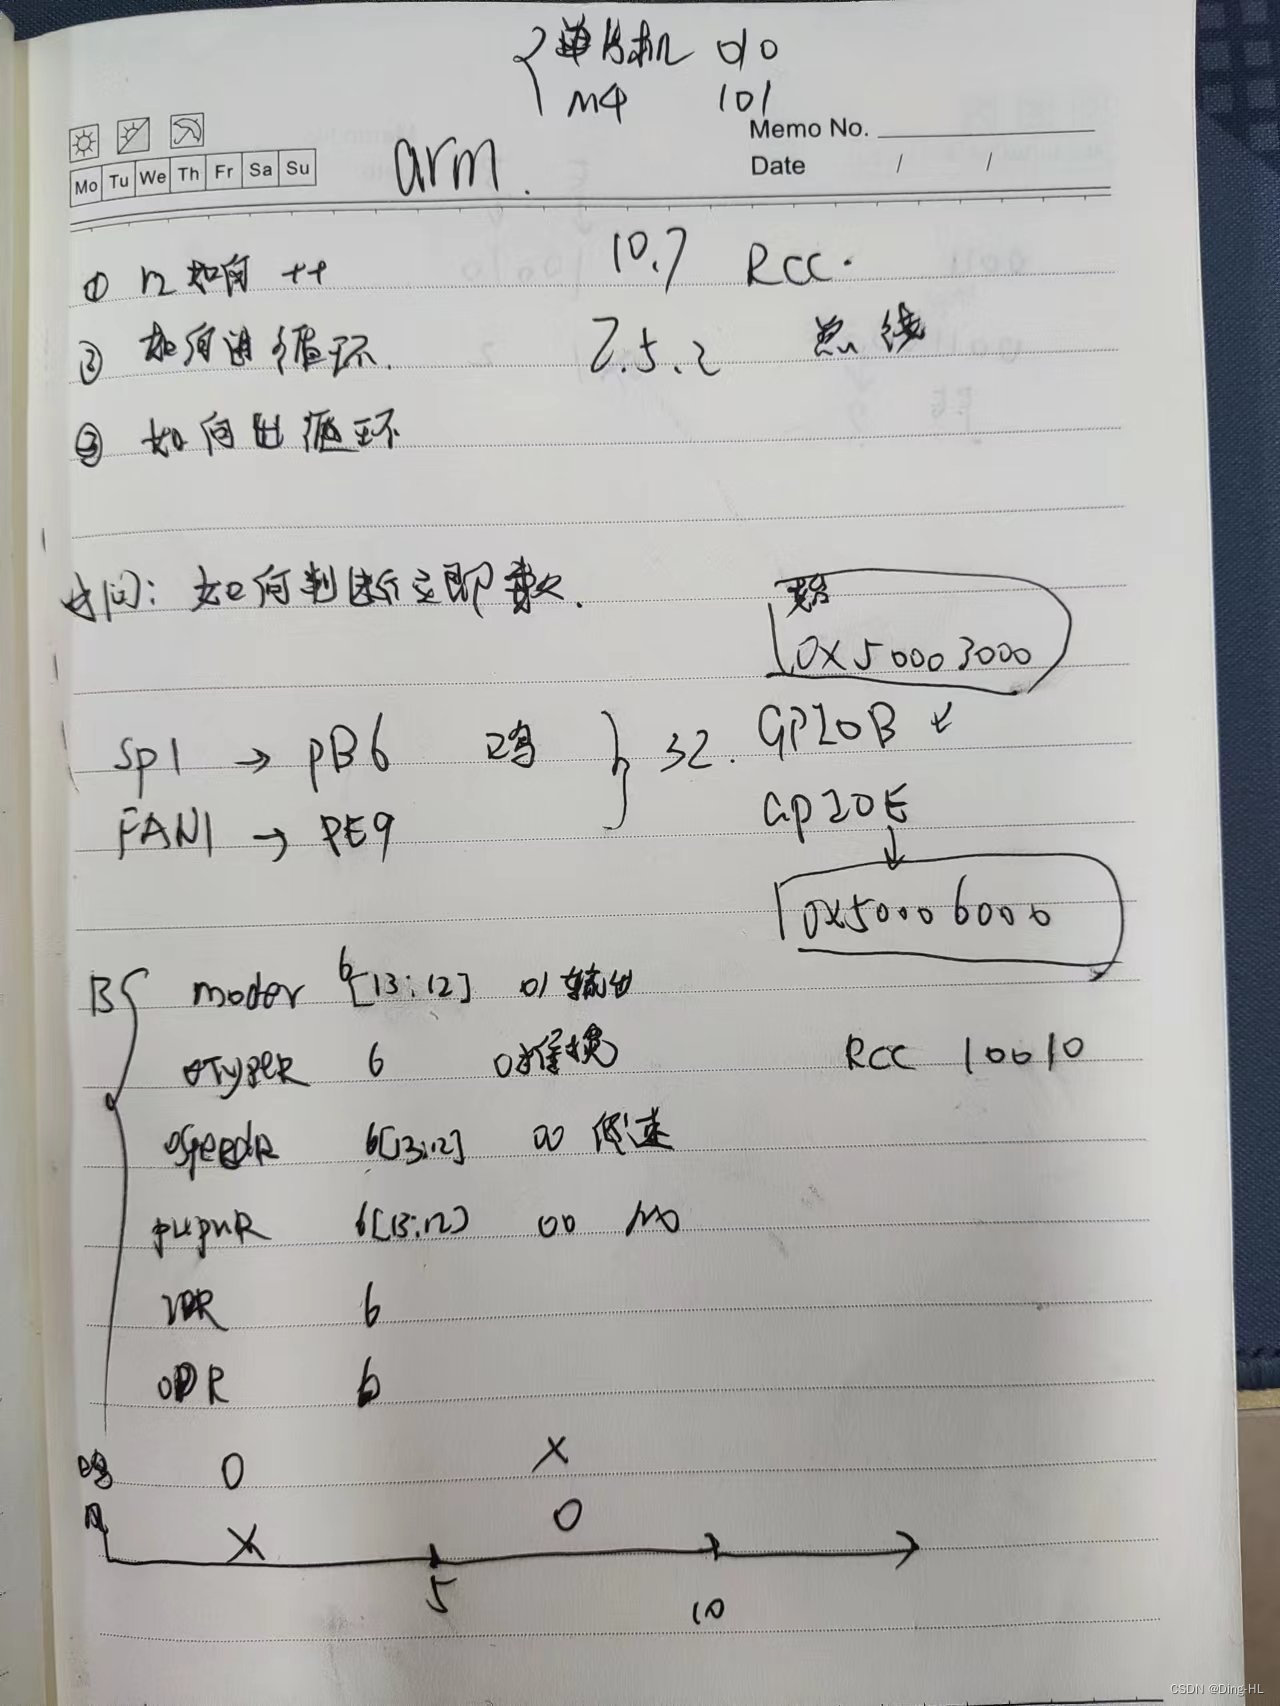 单片机 010
M4 101
Memo No.
Mo Tu We Th Fr Sa Su
arm.
Date / /
① r2 如何 ++ 10.7 RCC.
② 如何进循环. 2.5.2 总线
③ 如何出循环
时间: 如何判断立即数.
起始
0x5000 3000
SP1 → PB6 鸣 } 32. GPIOB
FAN1 → PE9 GPIOE
0x5000 6000
B { moder 6[13:12] 01 输出
OTypeR 6 0 推挽 RCC 10010
OSpeedR 6[13:12] 00 低速
pupdR 6[13:12] 00 no
IDR 6
ODR 6
鸣 O X
风 X O
5 10
CSDN @Ding-HL